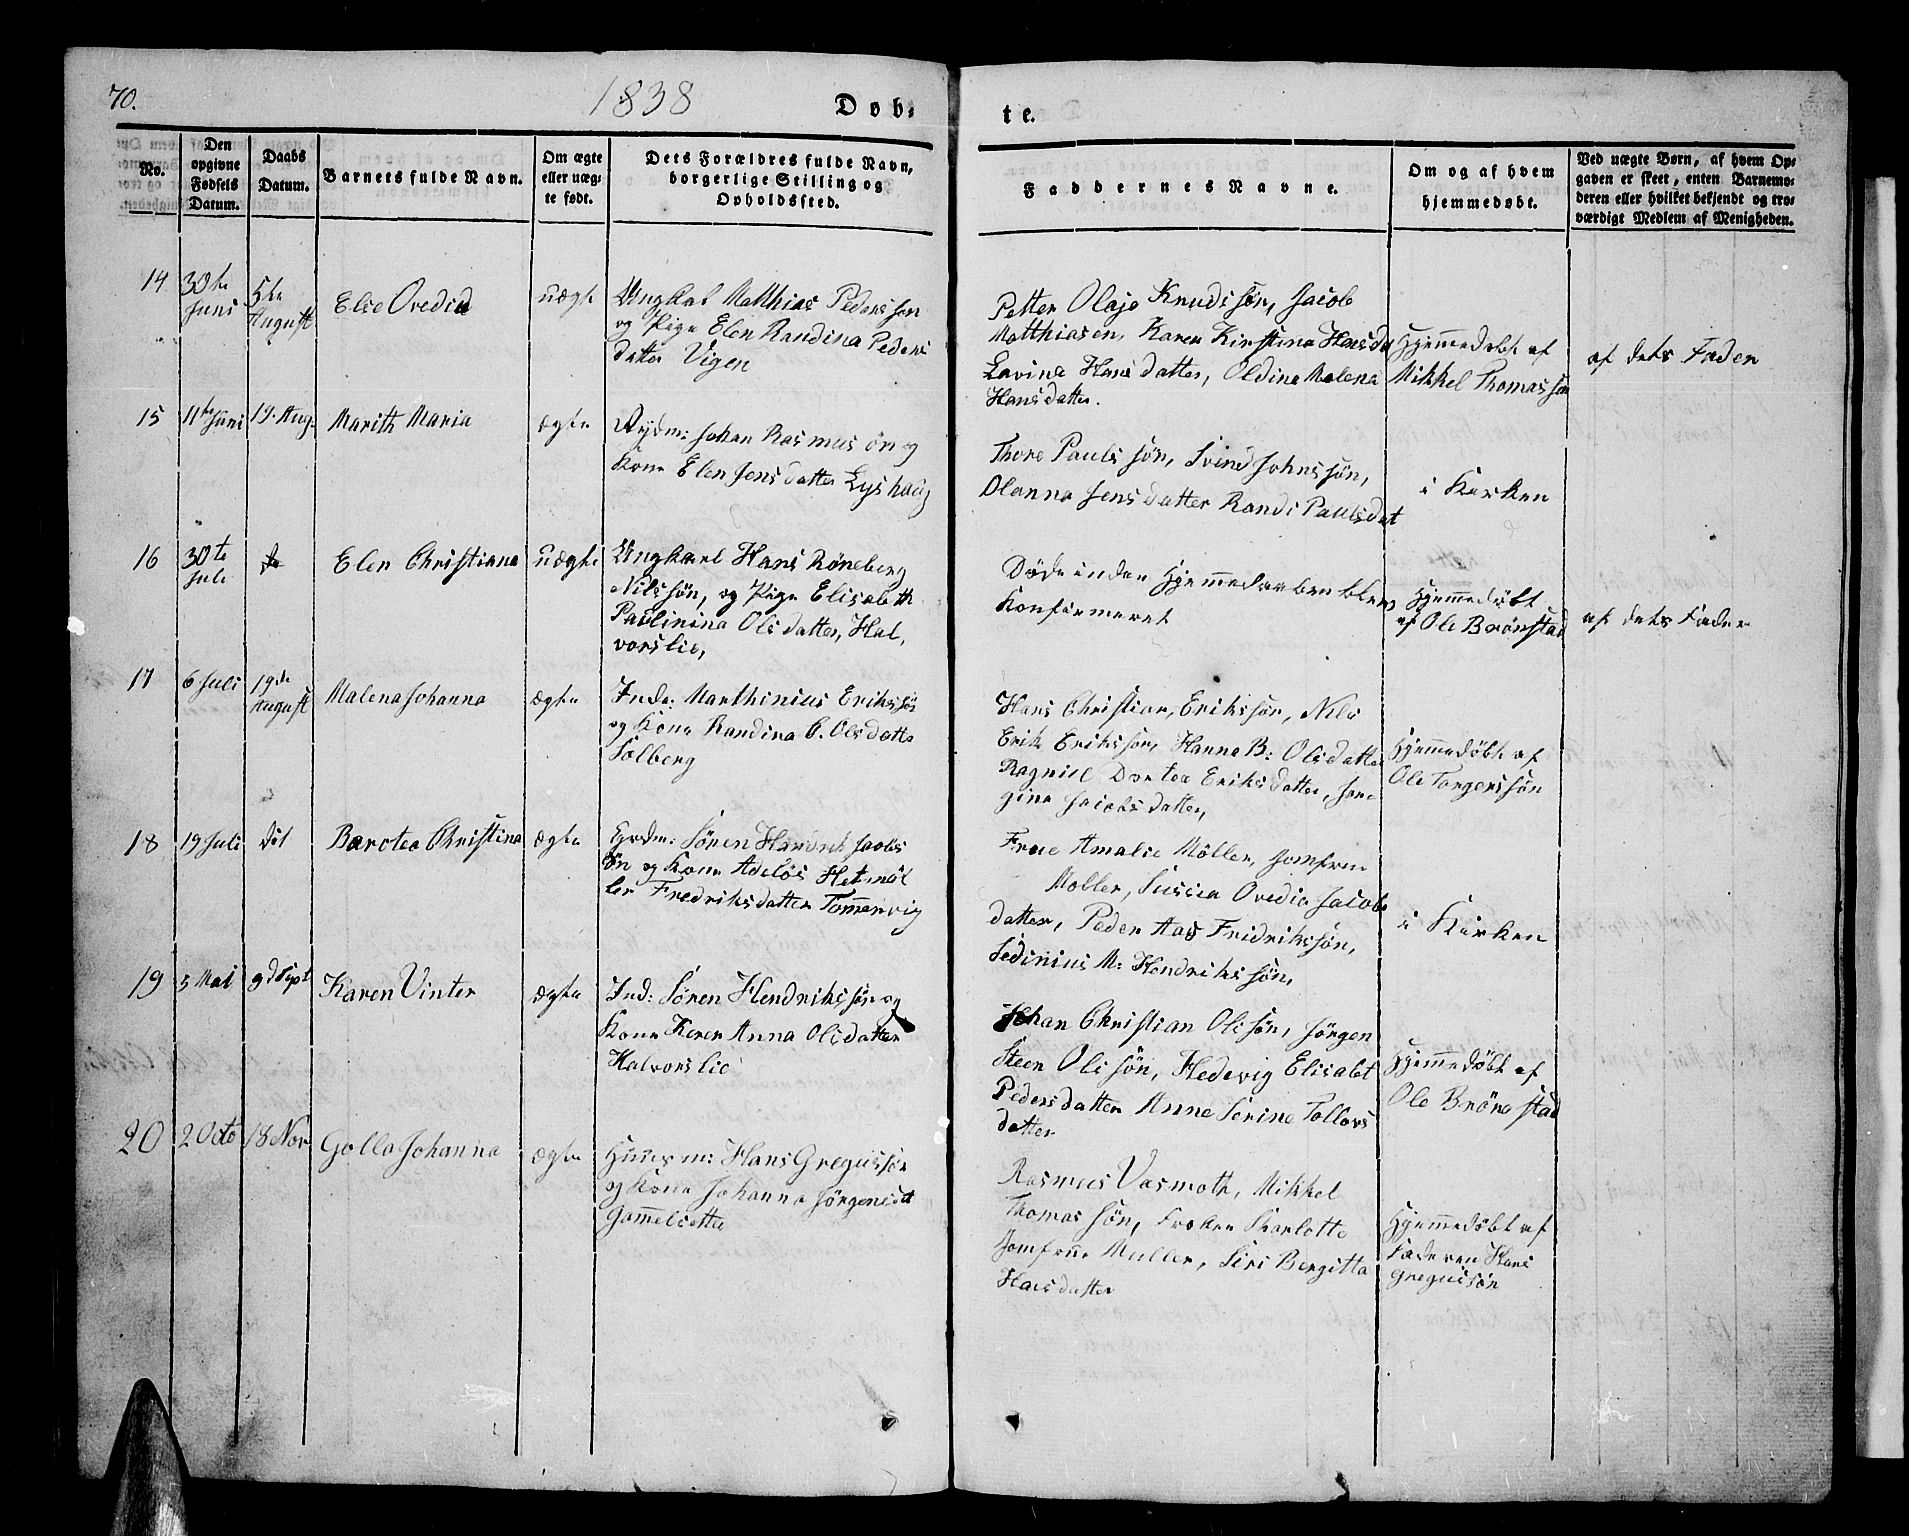 70.
1838
Døb-
te.
No.
Den opgivne Fødsels Datum.
Daabs Datum.
Barnets fulde Navn.
Om ægte eller uæg-te født.
Dets Forældres fulde Navn, borgerlige Stilling og Opholdssted.
Faddernes Navne.
Om og af hvem hjemmedøbt.
Ved uægte Børn, af hvem Op-gaven er skeet, enten Barnemo-deren eller hvilket bekjendt og tro-værdigt Medlem af Menigheden.
14
30te Juni
5te August
Else Ovedia
uægte
Ungkal Matthias Pedersøn
og Pige Elen Randina Peders
datter Vigen
Petter Olaje Knudssøn, Jacob
Matthiasen, Karen Kirstina Hansda
Lavina Hansdatter, Oldina Malena
Hansdatter.
Hjemmedøbt af
Mikkel Thomassøn
af dets Fader
15
11te Juni
19. Aug.
Marith Maria
ægte
Rydm: Johan Rasmusøn og
Kone Elen Jensdatter Lyshaug
Thore Paulssøn, Svend Johnssøn,
Olanna Jensdatter Randi Paulsdat
i Kirken
16
30te Juli
do
Elen Christiana
uægte
Ungkarl Hans Røneberg
Nilssøn, og Pige Elisabeth
Paulinina Olsdatter, Hal,
vorslie,
Døde inden Hjemmedaaben blev
Konfirmeret
Hjemmedøbt
af Ole Brønstad
af dets Fader
17
6 Juli
19de August
Malena Johanna
ægte
Inde: Marthinius Erikssøn
og Kone Randina C. Olsdatter
Solberg
Hans Christian, Erikssøn, Nils
Erik Erikssøn, Hanna B: Olsdatter
Ragniel Dortea Eriksdatter, Jør-
gina Jacobsdatter,
Hjemmedøbt af
Ole Torgerssøn
18
19 Juli
dit
Barotea Christina
ægte
Grdm: Søren Hendrik Jacobs
øn og Kone Adeløs Hetmøl
ler Fredriksdatter Tømmervig
Frue Amalie Møller, Jomfrue
Møller, Suscia Ovedia Jacobs
datter, Peder Aas Fridrikssøn,
Sedinius M: Hendrikssøn,
i Kirken
19
5 Mai
9d Sept
Karen Vinter
ægte
Ind: Søren Hendrikssøn og
Kone Keren Anna Olsdatter
Halvorslie
Johan Christian Olsøn, Jørgen
Steen Olsøn, Hedevig Elisabet
Pedersdatter Anne Serine Tollovs
datter
Hjemmedøbt af
Ole Brønestad
20
2 Octo
18 Nov
Golla Johanna
ægte
Huusm: Hans Gregussøn
og Kone Johanna Jørgensdt
Gammelsætter
Rasmus Vasmoth, Mikkel
Thomassøn, Frøken Skarlotte
Jomfrue Muller, Siri Bergitta
Hansdatter
Hjemmedøbt af
Faderen Hans
Gregussøn